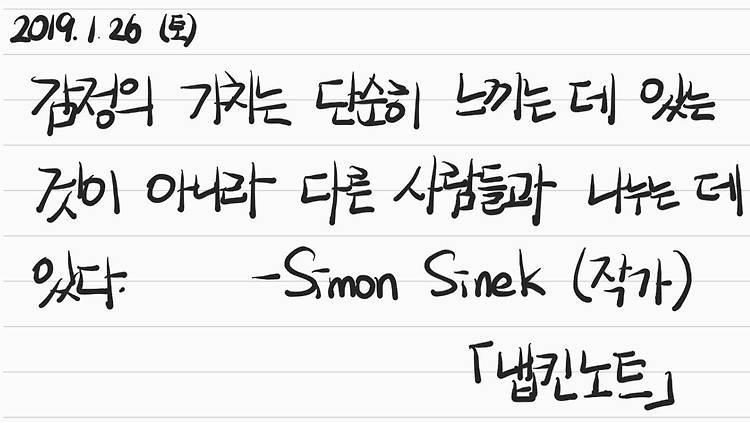 2019. 1. 26 (토)
감정의 가치는 단순히 느끼는 데 있는
것이 아니라 다른 사람들과 나누는 데
있다. -Simon Sinek (작가)
「냅킨노트」